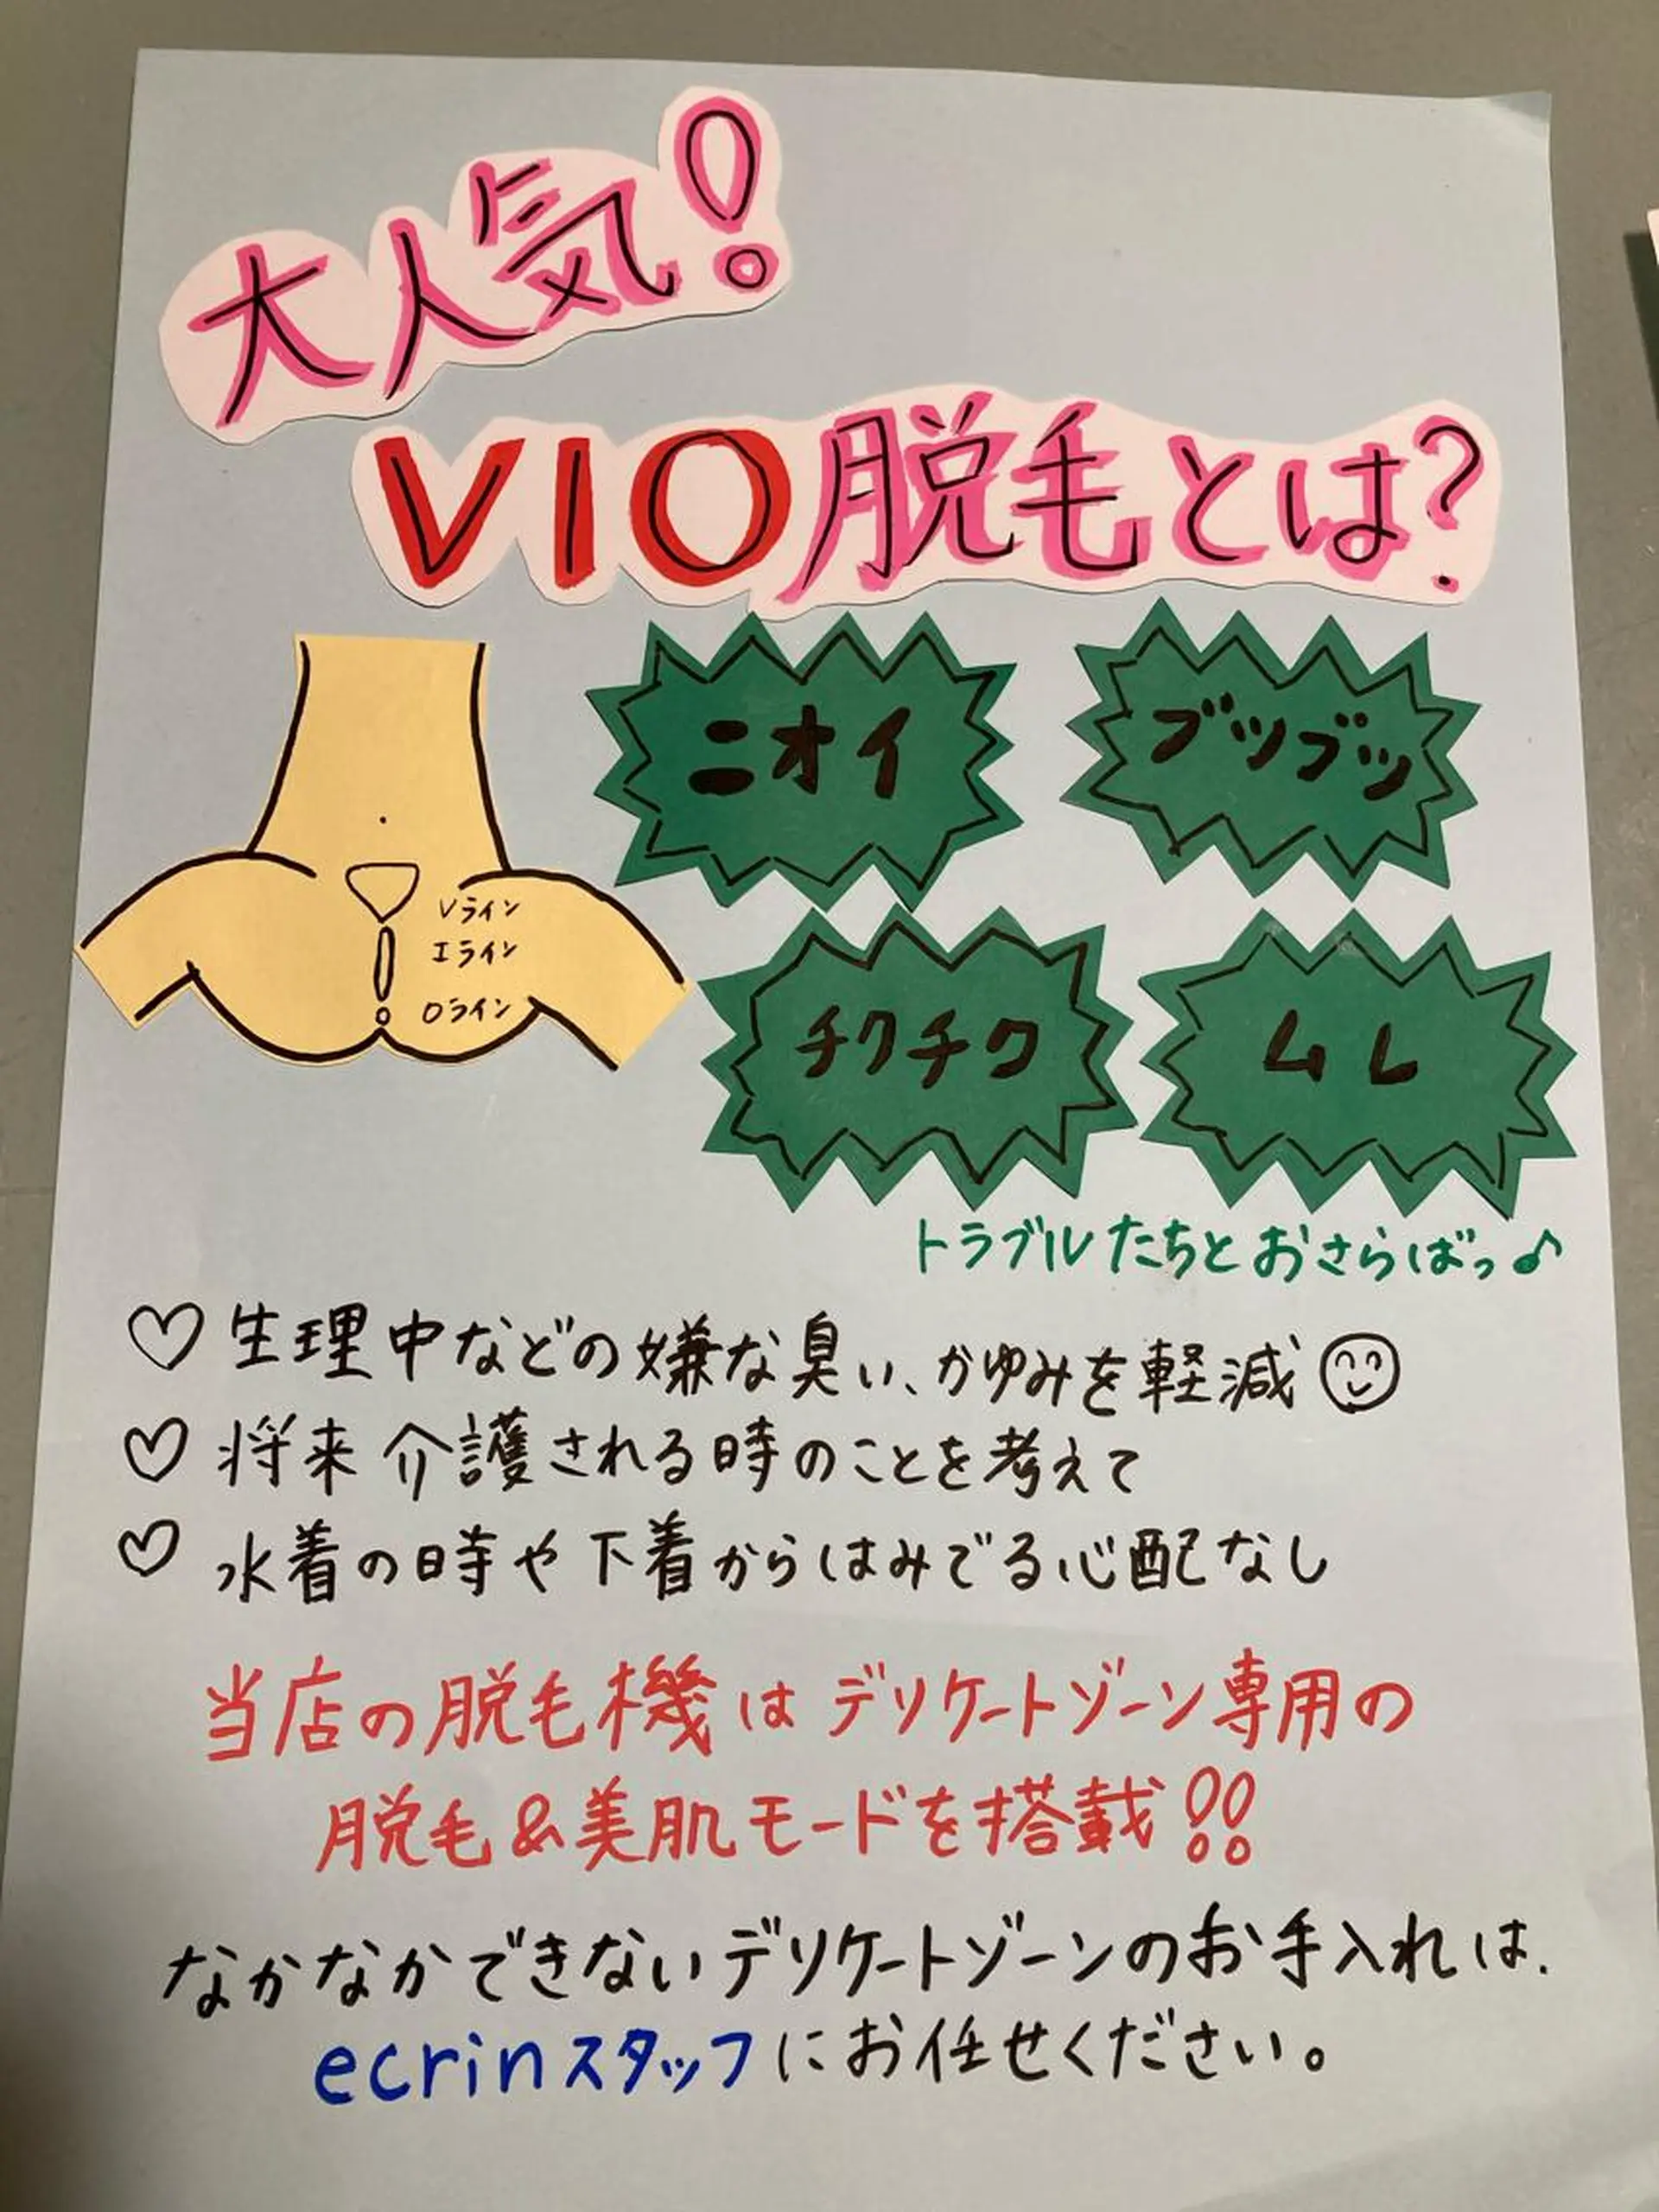 大人気!
VIO脱毛とは?
ニオイ
ブツブツ
Vライン
Iライン
Oライン
チクチク
ムレ
トラブルたちとおさらばっ♪
♡生理中などの嫌な臭い、かゆみを軽減
♡将来介護される時のことを考えて
♡水着の時や下着からはみでる心配なし
当店の脱毛機はデリケートゾーン専用の
脱毛&美肌モードを搭載!!
なかなかできないデリケートゾーンのお手入れは、
ecrinスタッフにお任せください。